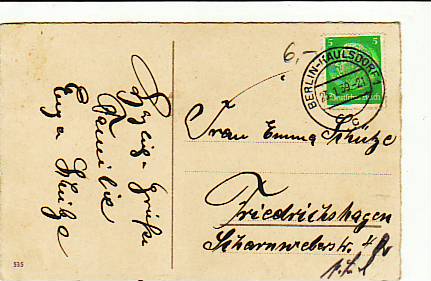 Herzlich. Grüße
Familie
Schütze
6,-
5 5
Deutsches Reich
BERLIN-KAULSDORF 1
c
Frau Emma Schütze
Friedrichshagen
Scharnweberstr.
535